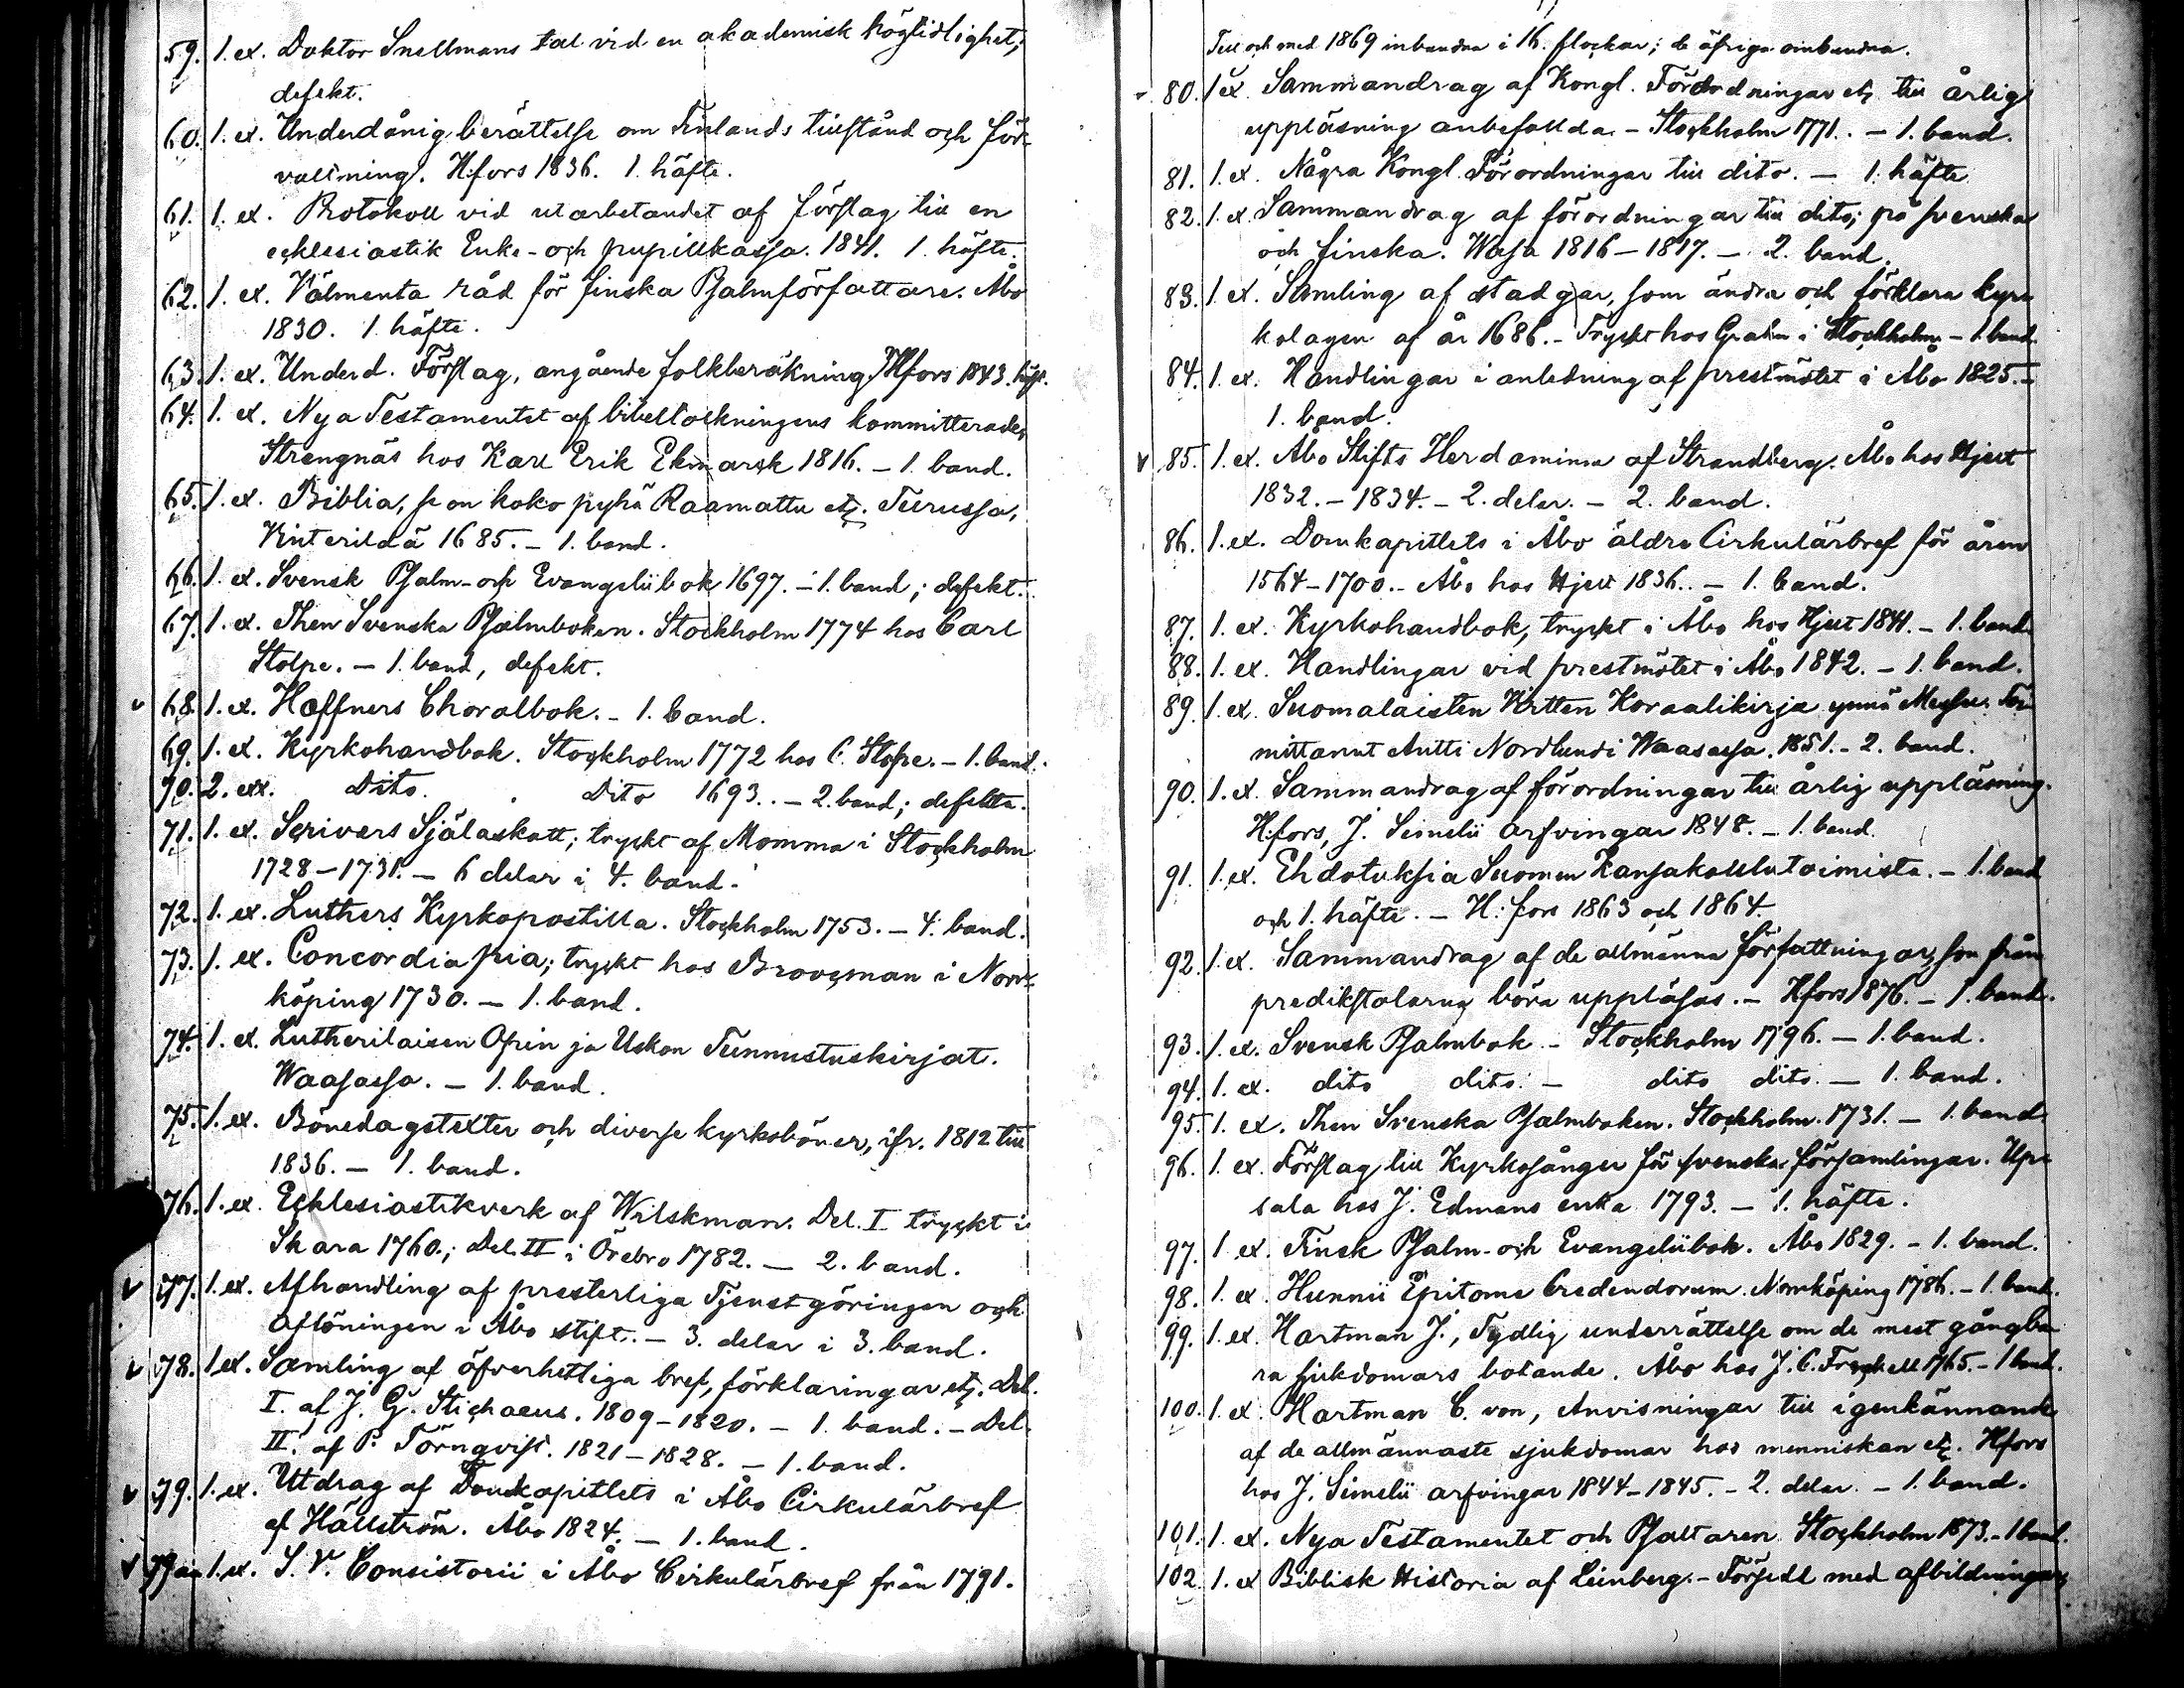 59. 1. ex. Doktor Snellmans tal vid en akademisk högtidlighet;
defekt.
60. 1. ex. Underdånig berättelse om Finlands tillstånd och för-
valtning. H:fors 1836. 1. häfte.
61. 1. ex. Protokoll vid utarbetandet af förslag till en
ecklesiastik Enke- och pupillkassa. 1841. 1. häfte.
62. 1. ex. Välmenta råd för finska Psalmförfattare. Åbo
1830. 1. häfte.
63. 1. ex. Underd. Förslag, angående folkberäkning. Hfors 1843. häft.
64. 1. ex. Nya Testamentet af bibeltolkningens kommitterade,
Strengnäs hos Karl Erik Ekmarck 1816. – 1. band.
65. 1. ex. Biblia, se on koko pyhä Raamattu etc. Turussa,
Winterildä 1685. – 1. band.
66. 1. ex. Svensk Psalm- och Evangeliibok 1697. – 1. band; defekt.
67. 1. ex. Then Svenska Psalmboken. Stockholm 1774 hos Carl
Stolpe. – 1. band, defekt.
68. 1. ex. Hæffners Choralbok. – 1. band.
69. 1. ex. Kyrkohandbok. Stockholm 1772 hos C. Stolpe. – 1. band.
70. 2. exx. Dito. Dito 1693. – 2. band; defekta.
71. 1. ex. Scrivers Själaskatt; tryckt af Momma i Stockholm
1728–1731. – 6 delar i 4. band.
72. 1. ex. Luthers Kyrkopostilla. Stockholm 1753. – 4. band.
73. 1. ex. Concordia pia; tryckt hos Broocman i Norr-
köping 1730. – 1. band.
74. 1. ex. Lutherilaisen Opin ja Uskon Tunnustuskirjat.
Waasassa. – 1. band.
75. 1. ex. Bönedagstexter och diverse kyrkoböner, ifr. 1812 till
1836. – 1. band.
76. 1. ex. Ecklesiastikverk af Wilskman. Del. I tryckt i
Skara 1760.; Del. II i Örebro 1782. – 2. band.
77. 1. ex. Afhandling af presterliga Tjenstgöringen och
aflöningen i Åbo stift. – 3. delar i 3. band.
78. 1. ex. Samling af öfverhetliga bref, förklaringar etc. Del.
I. af J. G. Stichaeus. 1809–1820. – 1. band. – Del.
II. af P. Törnqvist. 1821–1828. – 1. band.
79. 1. ex. Utdrag af Domkapitlets i Åbo Cirkulärbref
af Hällström. Åbo 1824. – 1. band.
79 1. ex. S. V. Consistorii i Åbo Cirkulärbref från 1791.
Till och med 1869 inbundna i 16. flockar; de öfriga oinbundna.
80. 1 ex. Sammandrag af Kongl. Förordningar etc. till årlig
uppläsning anbefallda. – Stockholm 1771. – 1. band.
81. 1. ex. Några Kongl. Förordningar till dito. – 1. häfte.
82. 1. ex. Sammandrag af förordningar till dito; på svenska
och finska. Wasa 1816–1817. – 2. band.
83. 1. ex. Samling af stadgar, som ändra och förklara kyr-
kolagen af år 1686. – Tryckt hos Grahn i Stockholm – 1. band.
84. 1. ex. Handlingar i anledning af prestmötet i Åbo 1825. –
1. band.
85. 1. ex. Åbo Stifts Herdaminne af Strandberg. Åbo hos Hjelt
1832. – 1834. – 2. delar. – 2. band.
86. 1. ex. Domkapitlets i Åbo äldre Cirkulärbref för åren
1564–1700. – Åbo hos Hjelt 1836. – 1. band.
87. 1. ex. Kyrkohandbok, tryckt i Åbo hos Hjelt 1841. – 1. band.
88. 1. ex. Handlingar vid prestmötet i Åbo 1842. – 1. band.
89. 1. ex. Suomalaisten Wirtten Koraalikirja ynnä Messun. Toi-
mittanut Antti Nordlund: Waasassa. 1851. – 2. band.
90. 1. ex. Sammandrag af förordningar till årlig uppläsning.
H:fors, J. Simelii arfvingar 1848. – 1. band.
91. 1. ex. Ehdotuksia Suomen Kansakoulutoimista. – 1. band
och 1. häfte. – H:fors 1863 och 1864.
92. 1. ex. Sammandrag af de allmänna författningar, som från
predikstolarna böra uppläsas. – Hfors 1876. – 1. band.
93. 1. ex. Svensk Psalmbok. – Stockholm 1796. – 1. band.
94. 1. ex. dito dito. – dito dito. – 1. band.
95. 1. ex. Then Svenska Psalmboken. Stockholm. 1731. – 1. band.
96. 1. ex. Förslag till Kyrkosånger för svenska församlingar. Up-
sala hos J. Edmans enka 1793. – 1. häfte.
97. 1 ex. Finsk Psalm- och Evangeliibok. Åbo 1829. – 1. band.
98. 1. ex. Hunnii Epitome Credendorum. Norrköping 1786. – 1. band.
99. 1. ex. Hartman J., Tydlig underrättelse om de mest gångba-
ra sjukdomars botande. Åbo hos J. C. Frenckell 1765. – 1 band.
100. 1. ex. Hartman C. von, Anvisningar till igenkännande
af de allmännaste sjukdomar hos menniskan etc. Hfors
hos J. Simelii arfvingar 1844–1845. – 2. delar. – 1. band.
101. 1. ex. Nya Testamentet och Psaltaren. Stockholm 1873. – 1 band.
102. 1. ex Biblisk Historia af Leinberg. – Försedd med afbildningar,